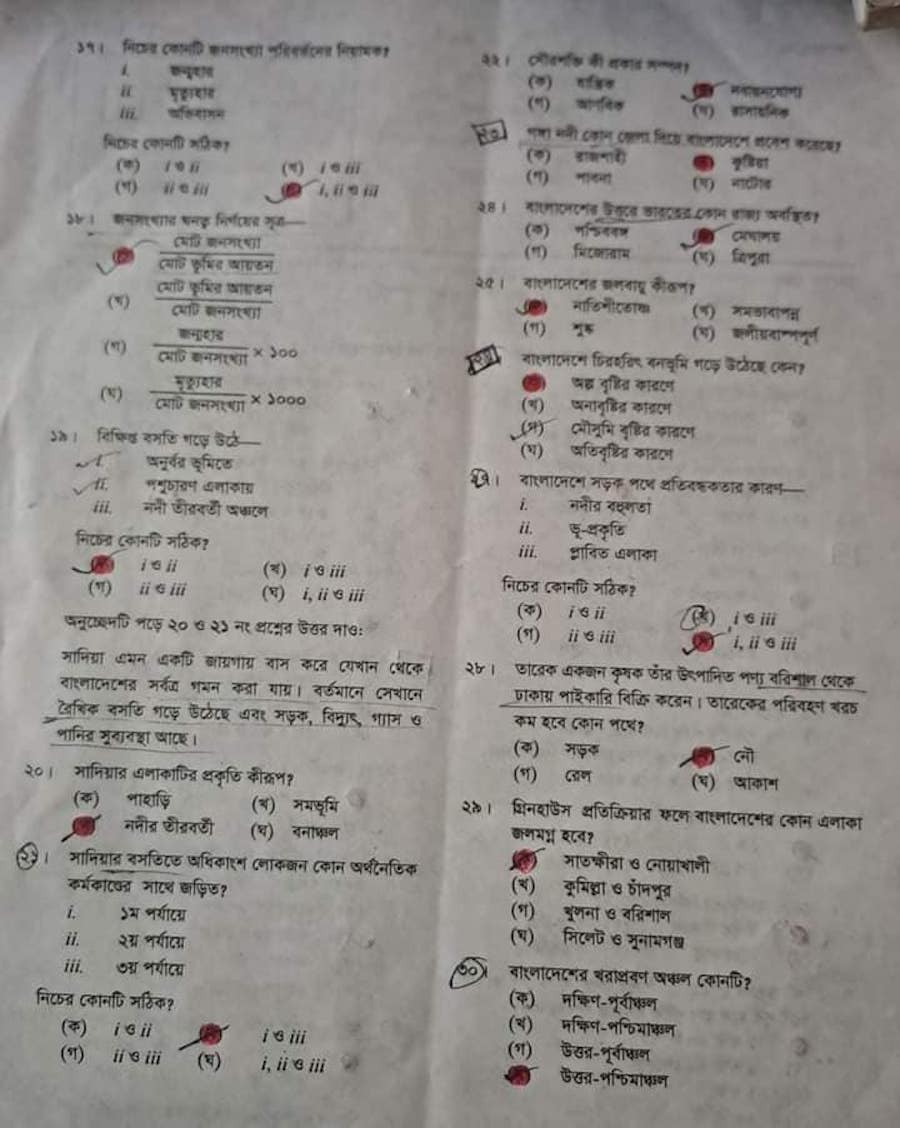 ১৭। নিচের কোনটি জনসংখ্যা পরিবর্তনের নিয়ামক?
i. জন্মহার
ii. মৃত্যুহার
iii. অভিবাসন
নিচের কোনটি সঠিক?
(ক) i ও ii (খ) i ও iii
(গ) ii ও iii i, ii ও iii
১৮। জনসংখ্যার ঘনত্ব নির্ণয়ের সূত্র—
মোট জনসংখ্যা
মোট ভূমির আয়তন
(খ) মোট ভূমির আয়তন
মোট জনসংখ্যা
(গ) জন্মহার
মোট জনসংখ্যা × ১০০
(ঘ) মৃত্যুহার
মোট জনসংখ্যা × ১০০০
১৯। বিক্ষিপ্ত বসতি গড়ে উঠে—
i. অনুর্বর ভূমিতে
ii. পশুচারণ এলাকায়
iii. নদী তীরবর্তী অঞ্চলে
নিচের কোনটি সঠিক?
i ও ii (খ) i ও iii
(গ) ii ও iii (ঘ) i, ii ও iii
অনুচ্ছেদটি পড়ে ২০ ও ২১ নং প্রশ্নের উত্তর দাও:
সাদিয়া এমন একটি জায়গায় বাস করে যেখান থেকে
বাংলাদেশের সর্বত্র গমন করা যায়। বর্তমানে সেখানে
রৈখিক বসতি গড়ে উঠেছে এবং সড়ক, বিদ্যুৎ, গ্যাস ও
পানির সুব্যবস্থা আছে।
২০। সাদিয়ার এলাকাটির প্রকৃতি কীরূপ?
(ক) পাহাড়ি (খ) সমভূমি
নদীর তীরবর্তী (ঘ) বনাঞ্চল
২১। সাদিয়ার বসতিতে অধিকাংশ লোকজন কোন অর্থনৈতিক
কর্মকাণ্ডের সাথে জড়িত?
i. ১ম পর্যায়ে
ii. ২য় পর্যায়ে
iii. ৩য় পর্যায়ে
নিচের কোনটি সঠিক?
(ক) i ও ii i ও iii
(গ) ii ও iii (ঘ) i, ii ও iii
২২। সৌরশক্তি কী প্রকার সম্পদ?
(ক) যান্ত্রিক নবায়নযোগ্য
(গ) আণবিক (ঘ) রাসায়নিক
২৩ পদ্মা নদী কোন জেলা দিয়ে বাংলাদেশে প্রবেশ করেছে?
(ক) রাজশাহী কুষ্টিয়া
(গ) পাবনা (ঘ) নাটোর
২৪। বাংলাদেশের উত্তরে ভারতের কোন রাজ্য অবস্থিত?
(ক) পশ্চিবঙ্গ মেঘালয়
(গ) মিজোরাম (ঘ) ত্রিপুরা
২৫। বাংলাদেশের জলবায়ু কীরূপ?
নাতিশীতোষ্ণ (খ) সমভাবাপন্ন
(গ) শুষ্ক (ঘ) জলীয়বাষ্পপূর্ণ
২৬ বাংলাদেশে চিরহরিৎ বনভূমি গড়ে উঠেছে কেন?
অল্প বৃষ্টির কারণে
(খ) অনাবৃষ্টির কারণে
(গ) মৌসুমি বৃষ্টির কারণে
(ঘ) অতিবৃষ্টির কারণে
২৭। বাংলাদেশে সড়ক পথে প্রতিবন্ধকতার কারণ—
i. নদীর বহুলতা
ii. ভূ-প্রকৃতি
iii. প্লাবিত এলাকা
নিচের কোনটি সঠিক?
(ক) i ও ii (খ) i ও iii
(গ) ii ও iii i, ii ও iii
২৮। তারেক একজন কৃষক তাঁর উৎপাদিত পণ্য বরিশাল থেকে
ঢাকায় পাইকারি বিক্রি করেন। তারেকের পরিবহণ খরচ
কম হবে কোন পথে?
(ক) সড়ক নৌ
(গ) রেল (ঘ) আকাশ
২৯। গ্রিনহাউস প্রতিক্রিয়ার ফলে বাংলাদেশের কোন এলাকা
জলমগ্ন হবে?
সাতক্ষীরা ও নোয়াখালী
(খ) কুমিল্লা ও চাঁদপুর
(গ) খুলনা ও বরিশাল
(ঘ) সিলেট ও সুনামগঞ্জ
৩০। বাংলাদেশের খরাপ্রবণ অঞ্চল কোনটি?
(ক) দক্ষিণ-পূর্বাঞ্চল
(খ) দক্ষিণ-পশ্চিমাঞ্চল
(গ) উত্তর-পূর্বাঞ্চল
উত্তর-পশ্চিমাঞ্চল